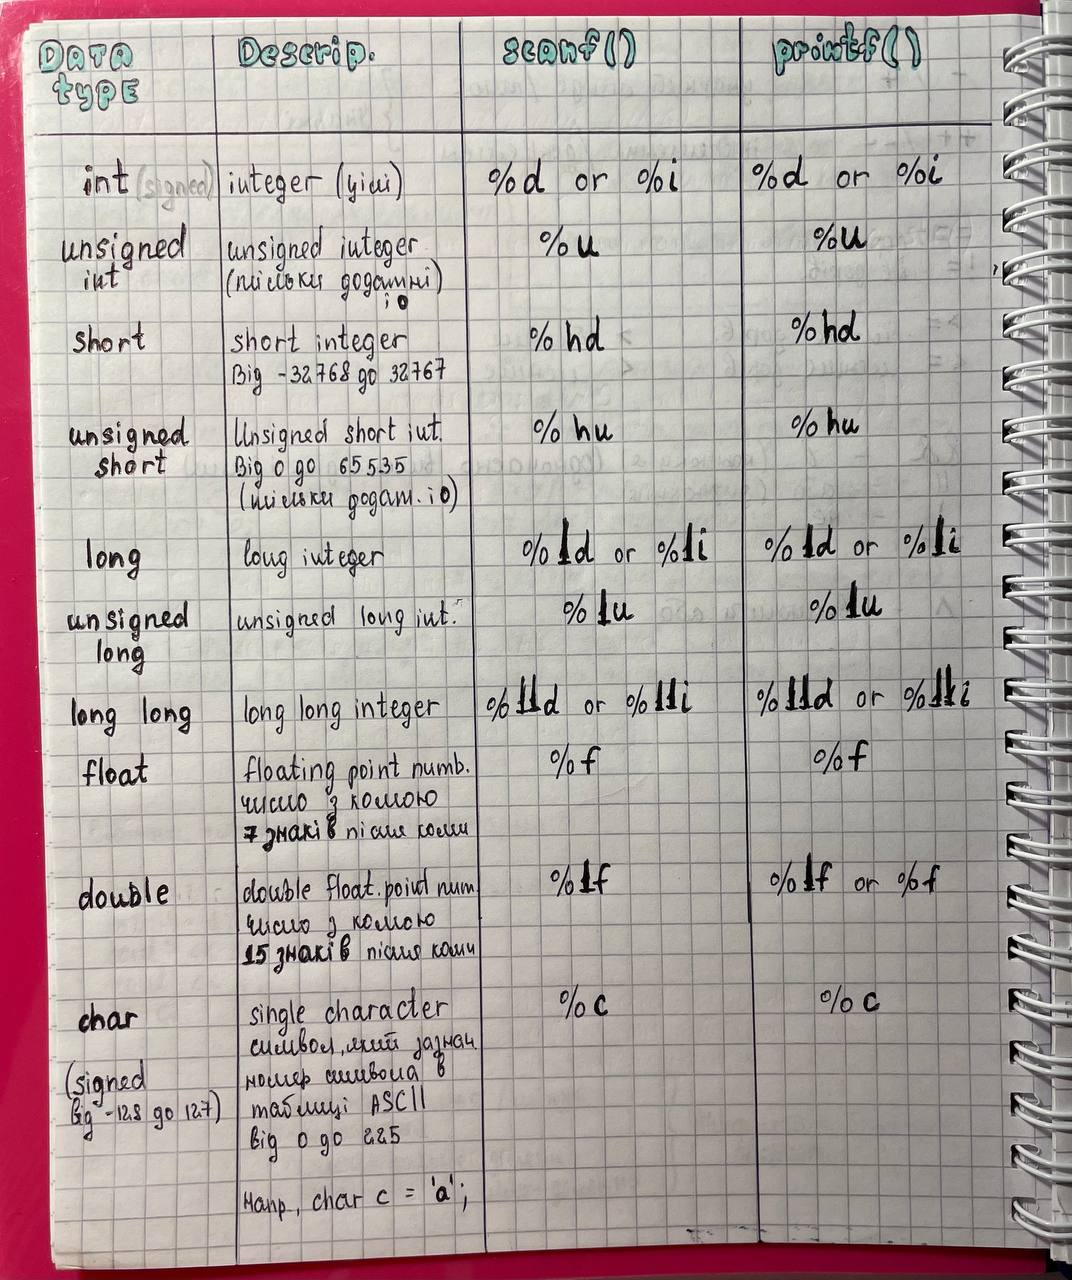 DATA TYPE Descrip. scanf() printf()
int (signed) integer (цілі) %d or %i %d or %i
unsigned int unsigned integer %u %u
(тільки додатні)
і 0
short short integer %hd %hd
Від -32768 до 32767
unsigned short Unsigned short int. %hu %hu
Від 0 до 65535
(тільки додат. і 0)
long long integer %ld or %li %ld or %li
unsigned long unsigned long int. %lu %lu
long long long long integer %lld or %lli %lld or %lli
float floating point numb. %f %f
число з комою
7 знаків після коми
double double float. point num %lf %lf or %f
число з комою
15 знаків після коми
char single character %c %c
символ, який зазнач.
(signed номер символа в
від -128 до 127) таблиці ASCII
від 0 до 225
Напр, char c = 'a';